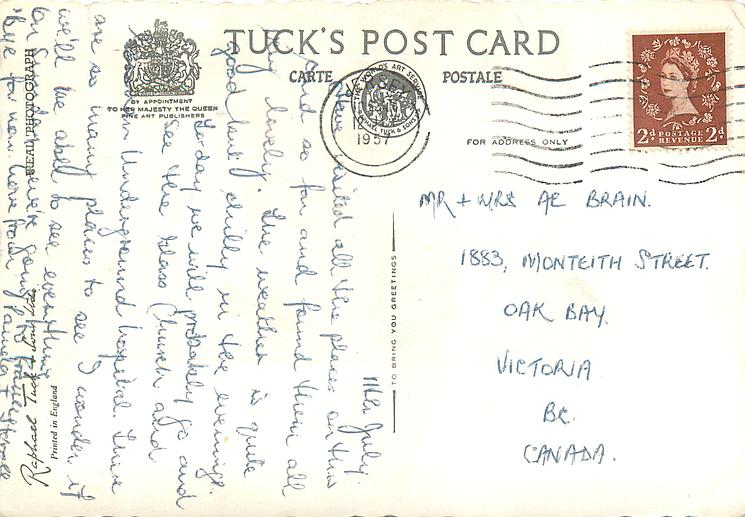 TUCK'S POST CARD
CARTE POSTALE
BY APPOINTMENT
TO HER MAJESTY THE QUEEN
FINE ART PUBLISHERS
THE WORLD'S ART SERVICE
TUCK & SONS
1957
FOR ADDRESS ONLY
2d POSTAGE REVENUE 2d
11th July.
Have visited all the places on this
card so far and found them all
very lovely. The weather is quite
good but chilly in the evenings.
To-day we will probably go and
see the Glass Church and
German Underground hospital. There
are so many places to see I wonder if
we'll be abel to see everything
On we're going to France
'Bye for now. love from Pamela +
MR + MRS AE BRAIN.
1883, MONTEITH STREET.
OAK BAY.
VICTORIA
BC.
CANADA.
TO BRING YOU GREETINGS
PHOTOGRAPH
Raphael Tuck & Sons Ltd
Printed in England